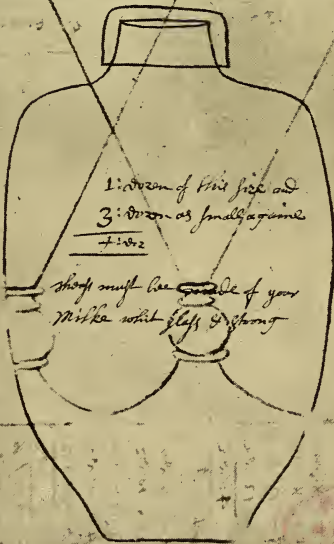 1: dozen of this size and
3: dozen as small againe
4: doz
thess must bee made of your
Milke whit glass & strong